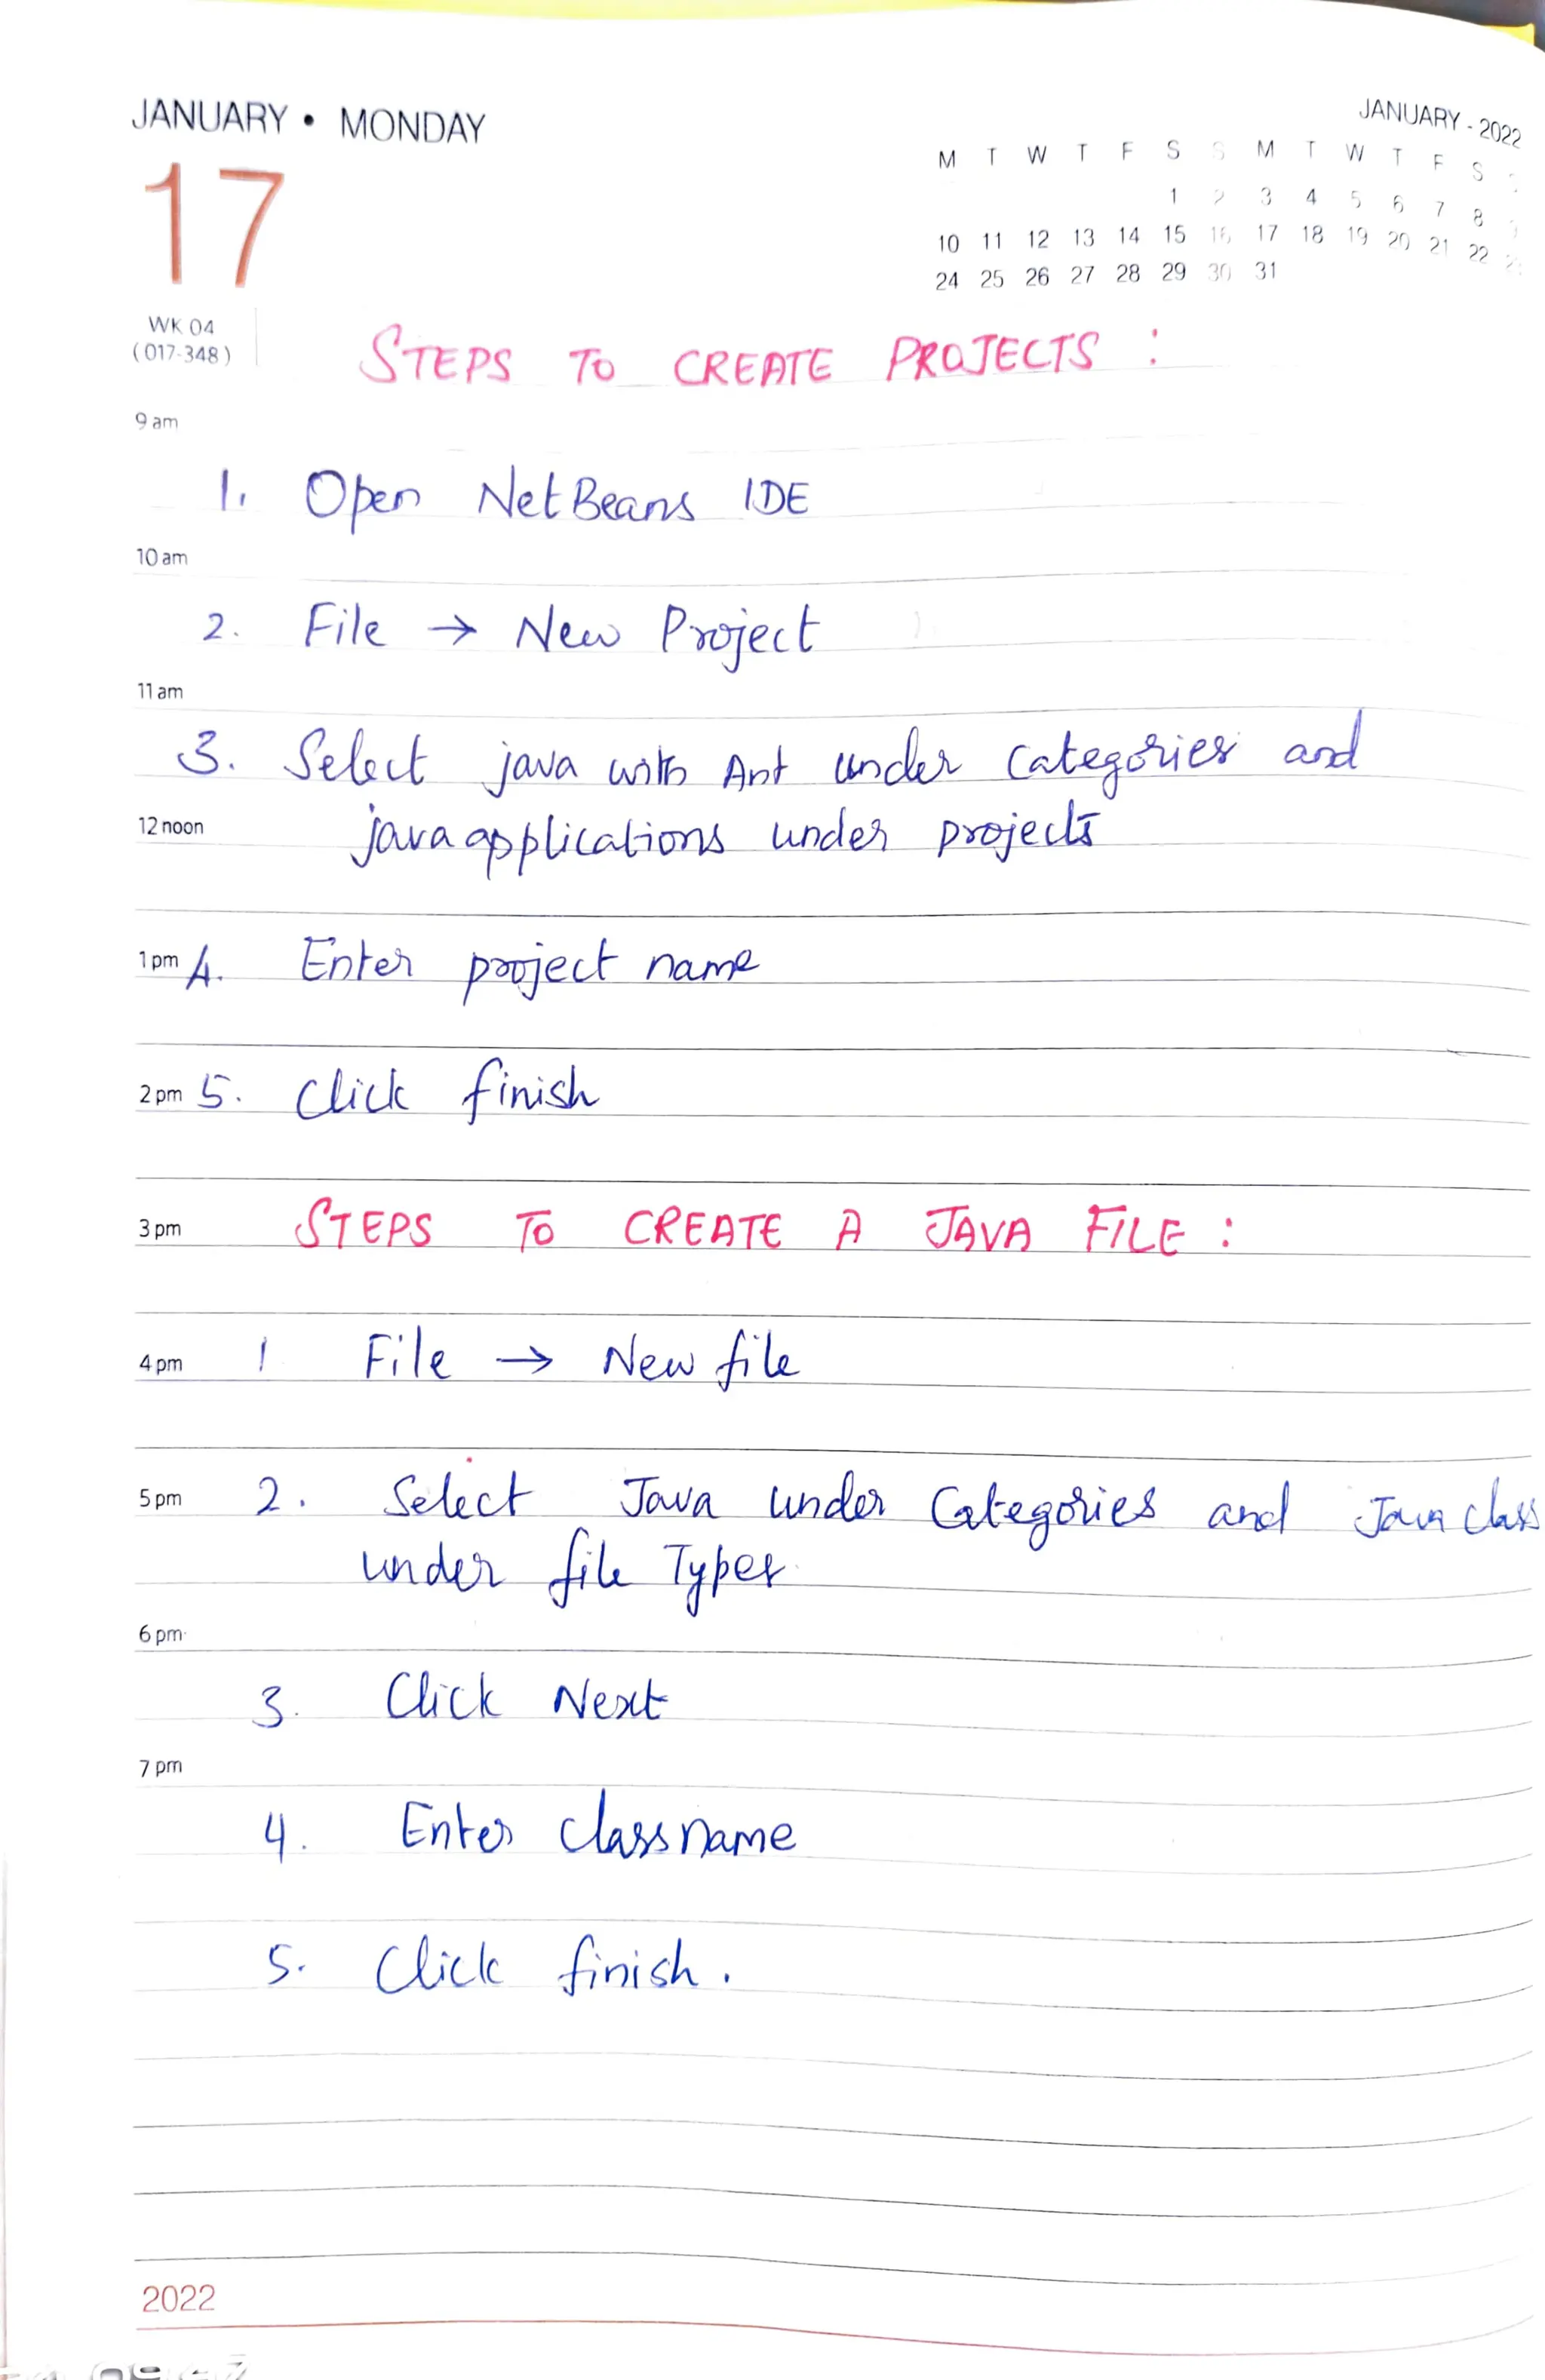 JANUARY • MONDAY
17
WK 04
(017-348)
JANUARY - 2022
M T W T F S S M T W T F S
1 2 3 4 5 6 7 8
10 11 12 13 14 15 16 17 18 19 20 21 22
24 25 26 27 28 29 30 31
STEPS TO CREATE PROJECTS :
9 am
1. Open NetBeans IDE
10 am
2. File → New Project
11 am
3. Select java with Ant under Categories and
12 noon java applications under projects
1 pm 4. Enter project name
2 pm 5. Click finish
3 pm STEPS TO CREATE A JAVA FILE :
4 pm 1 File → New file
5 pm 2. Select Java under Categories and Java class
under file Types
6 pm
3. Click Next
7 pm
4. Enter classname
5. Click finish.
2022